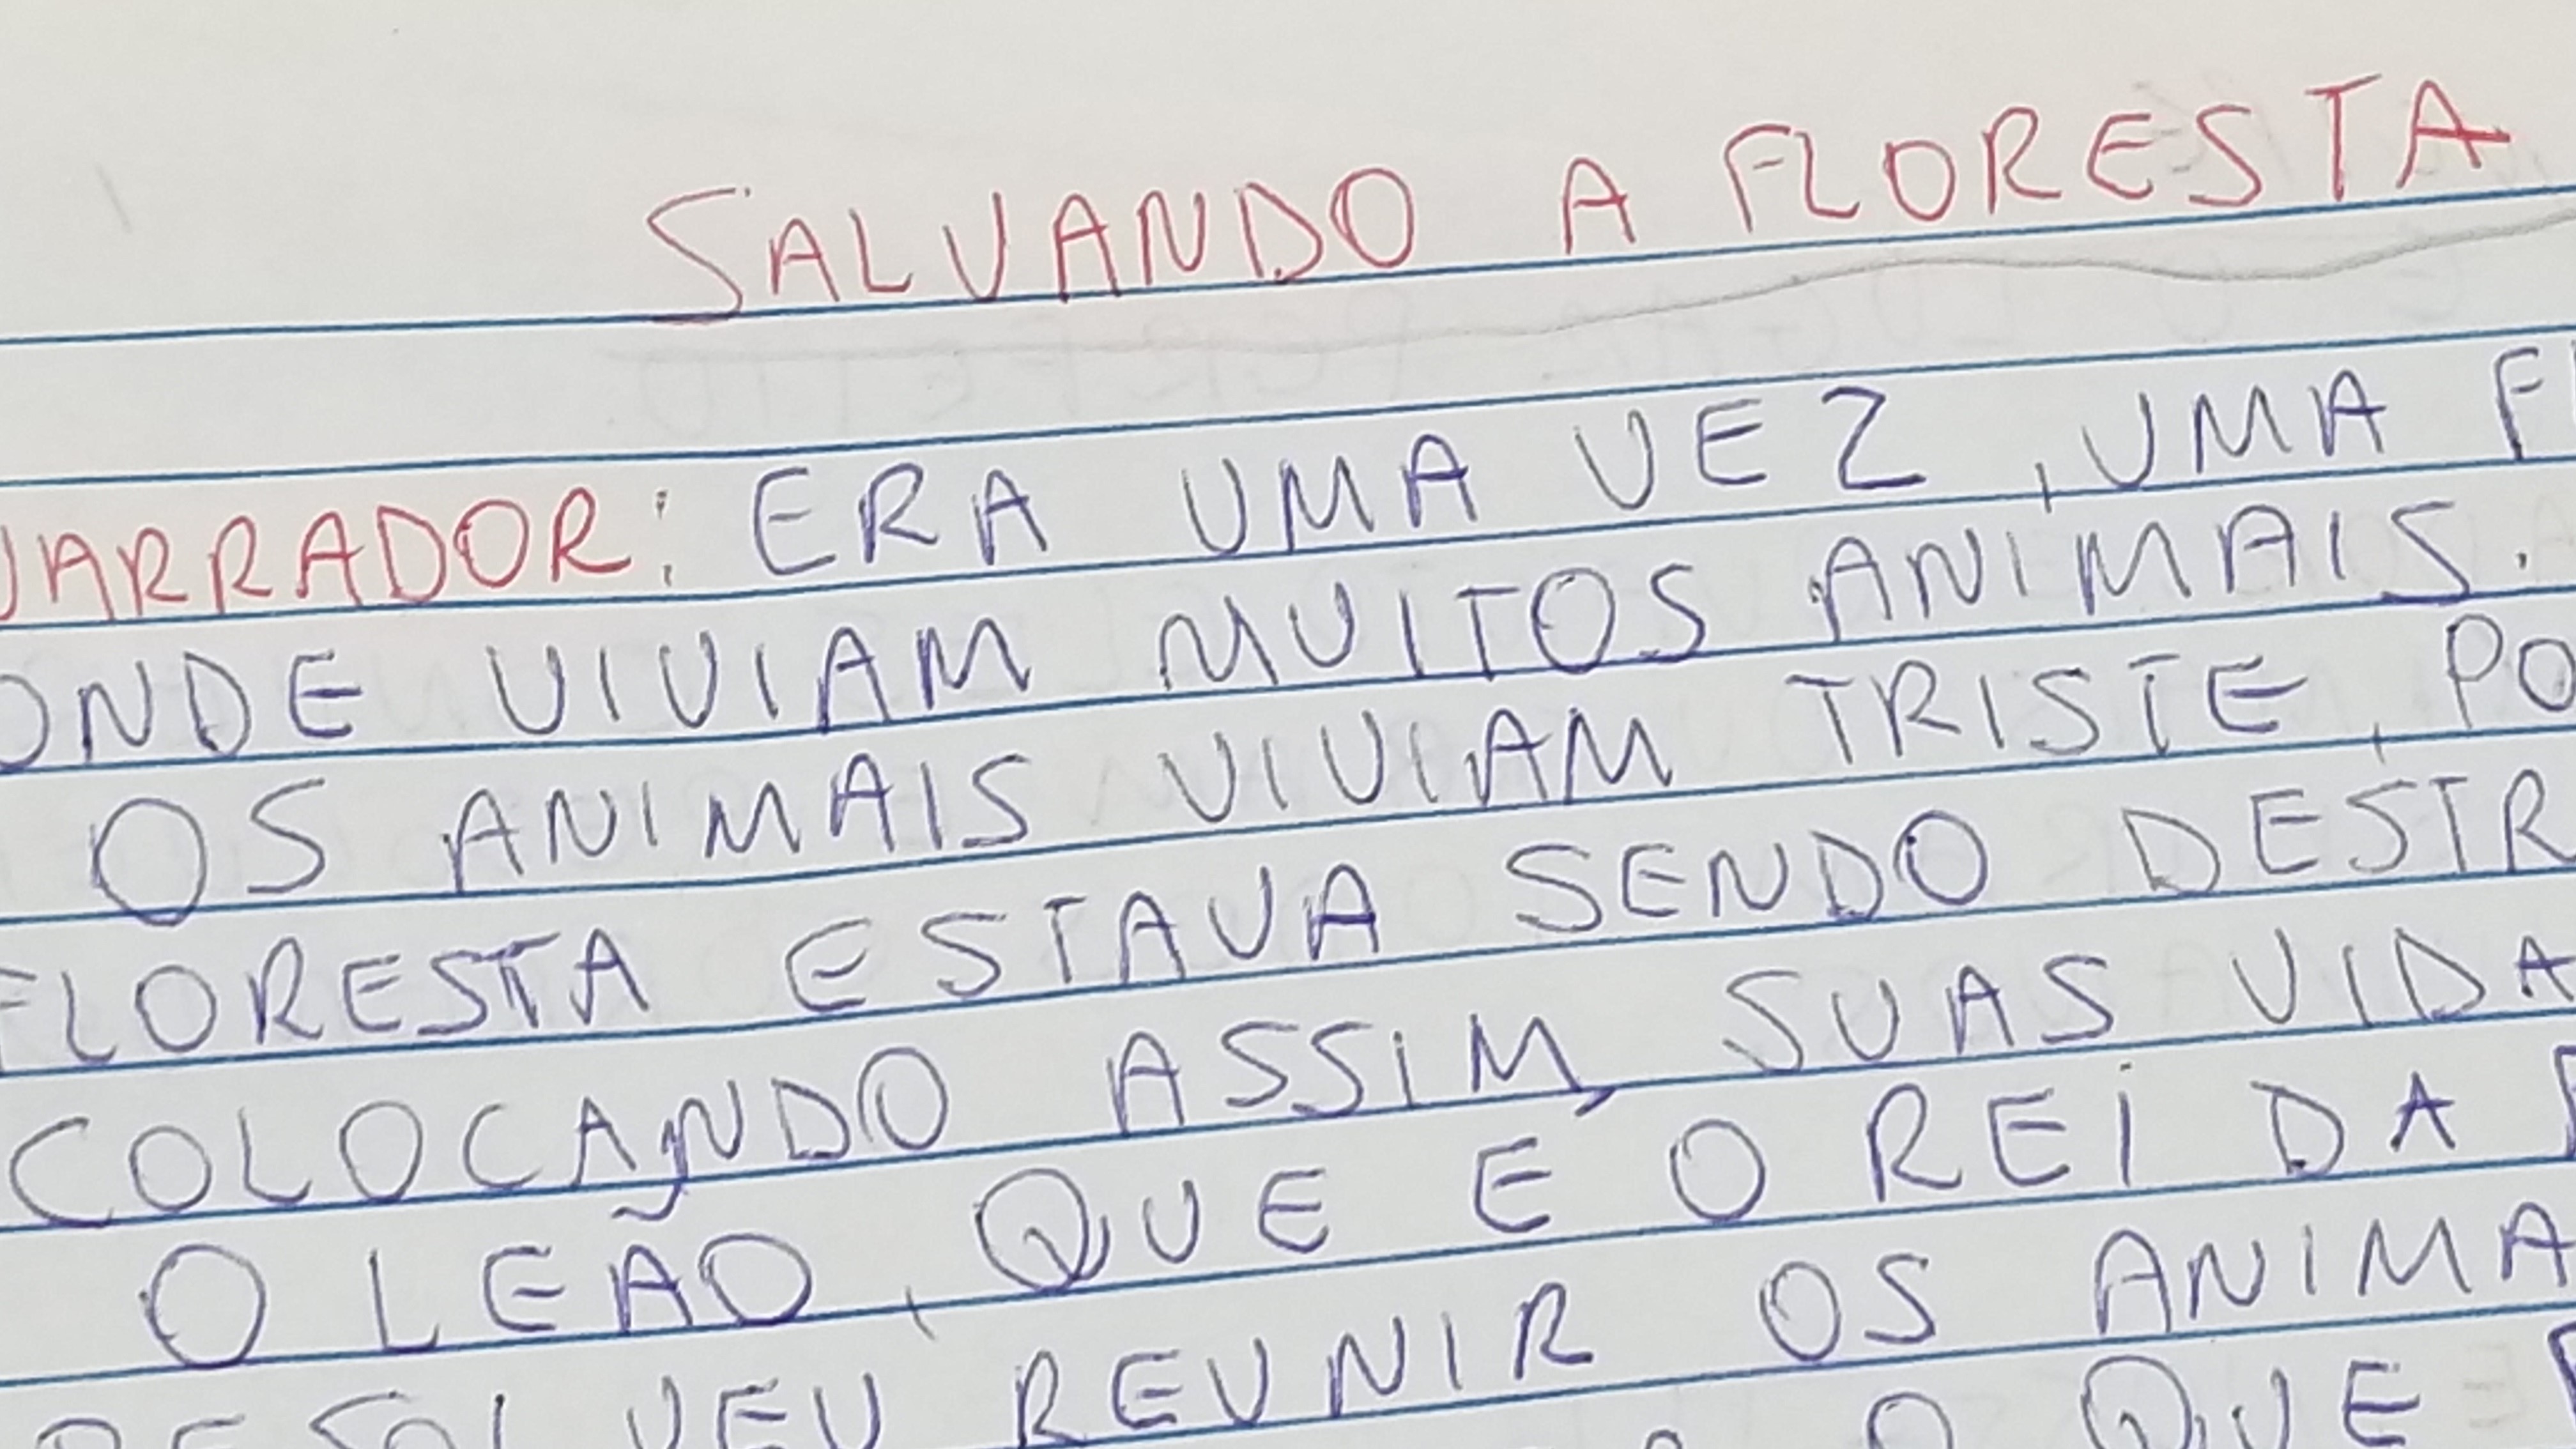 SALVANDO A FLORESTA
NARRADOR: ERA UMA VEZ, UMA
ONDE VIVIAM MUITOS ANIMAIS.
OS ANIMAIS VIVIAM TRISTE, PO
FLORESTA ESTAVA SENDO DESTR
COLOCANDO ASSIM, SUAS VIDA
O LEÃO, QUE É O REI DA
RESOLVEU REUNIR OS ANIMA
O QUE